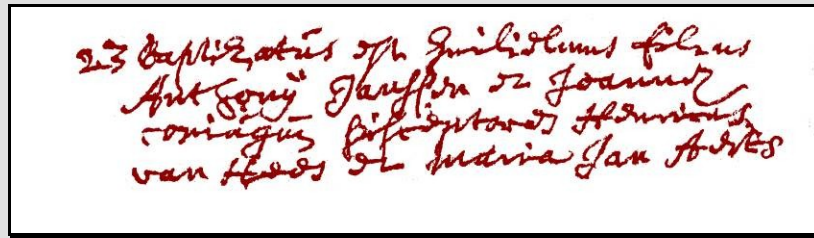 23 Baptizatus est Guilielmus filius
Anthonÿ Janssen et Joannæ
coniugum susceptores Henricus
van Hees et Maria Jan